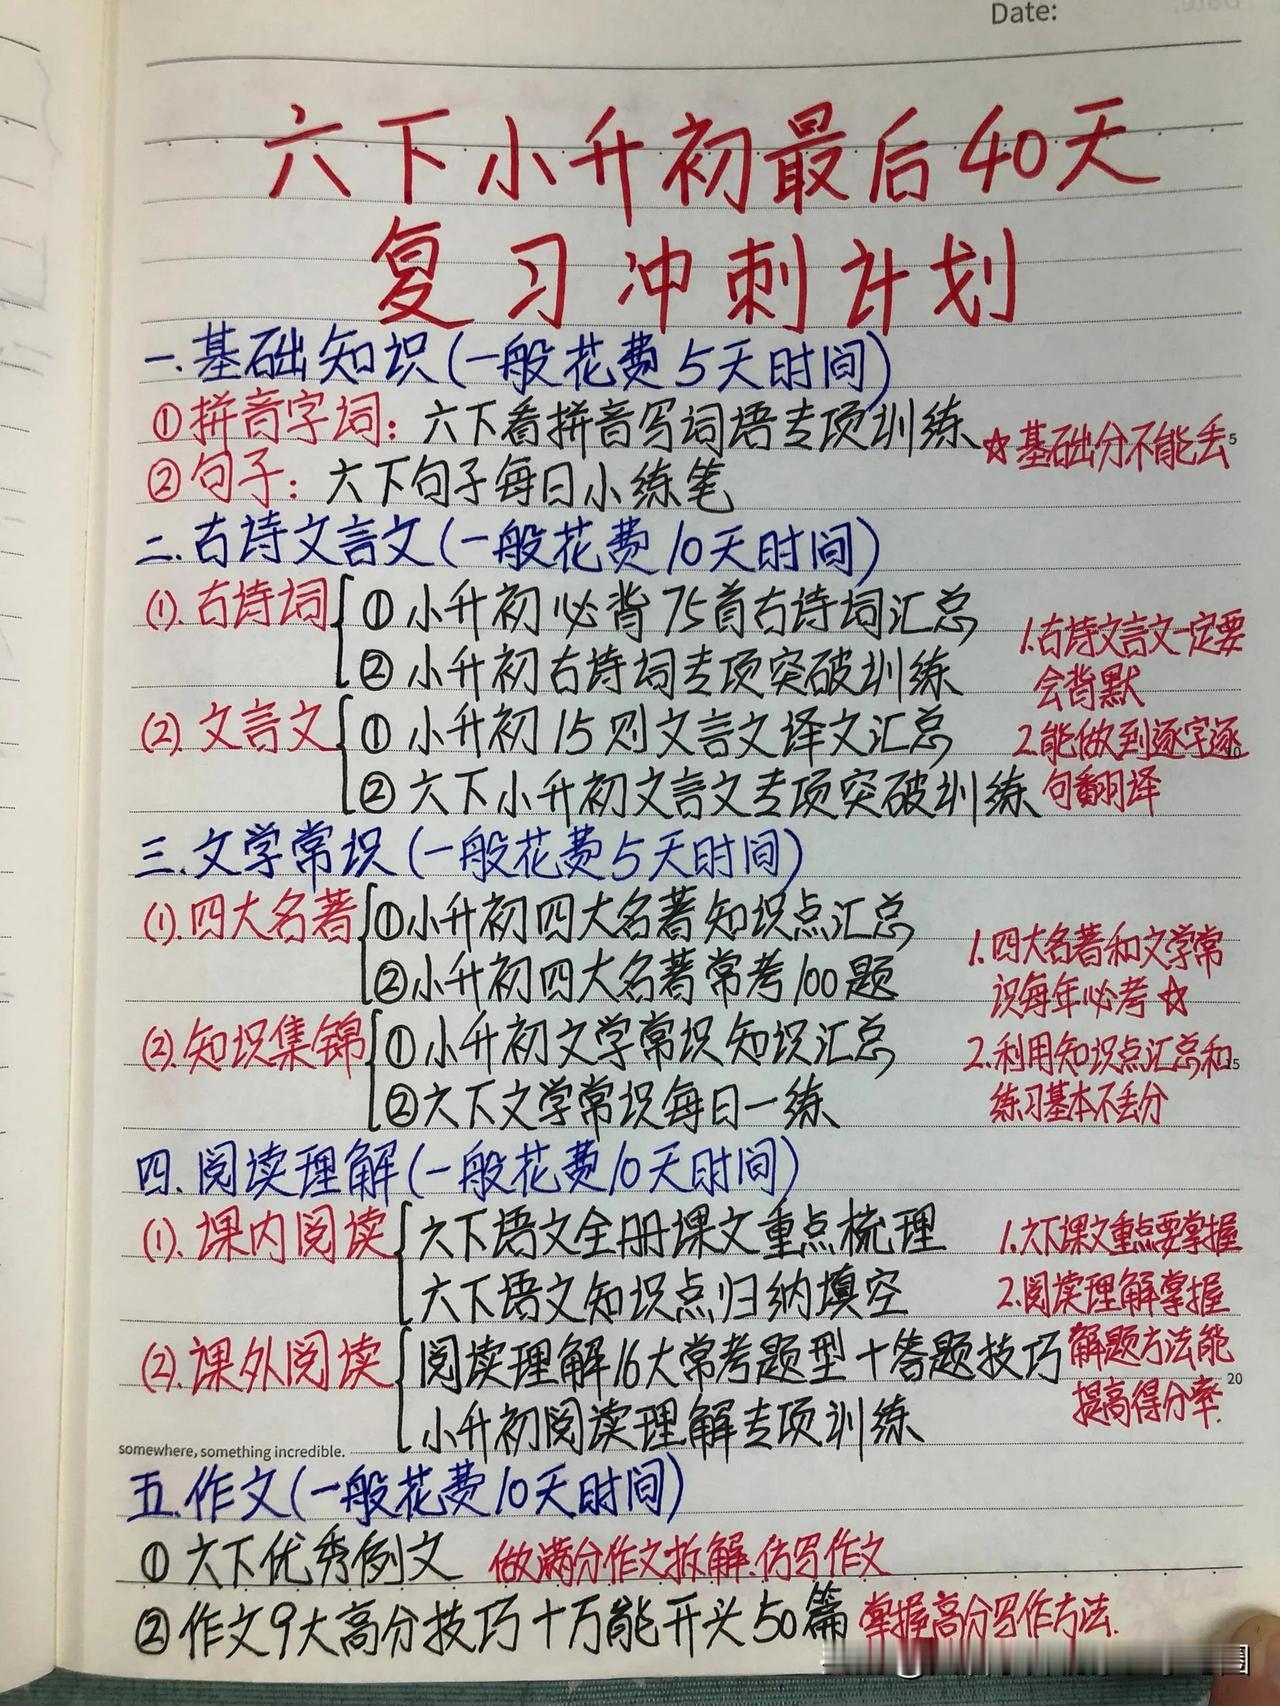 Date:
六下小升初最后40天
复习冲刺计划
一.基础知识(一般花费5天时间)
①拼音字词：六下看拼音写词语专项训练
☆基础分不能丢
5
②句子：六下句子每日小练笔
二.古诗文言文(一般花费10天时间)
(1).古诗词
①小升初必背75首古诗词汇总
②小升初古诗词专项突破训练
1.古诗文言文一定要
会背默
(2).文言文
①小升初15则文言文译文汇总
②六下小升初文言文专项突破训练
2.能做到逐字逐
句翻译
10
三.文学常识(一般花费5天时间)
(1).四大名著
①小升初四大名著知识点汇总
②小升初四大名著常考100题
1.四大名著和文学常
识每年必考☆
(2).知识集锦
①小升初文学常识知识汇总
②六下文学常识每日一练
2.利用知识点汇总和
练习基本不丢分
15
四.阅读理解(一般花费10天时间)
(1).课内阅读
六下语文全册课文重点梳理
六下语文知识点归纳填空
1.六下课文重点要掌握
2.阅读理解掌握
解题方法能
提高得分率.
(2).课外阅读
阅读理解16大常考题型+答题技巧
小升初阅读理解专项训练
20
somewhere, something incredible.
五.作文(一般花费10天时间)
①六下优秀例文 做满分作文拆解.仿写作文
②作文9大高分技巧+万能开头50篇 掌握高分写作方法.